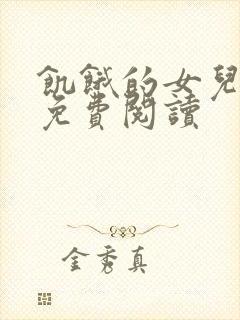 飢餓的女兒
免費閱讀
金秀真